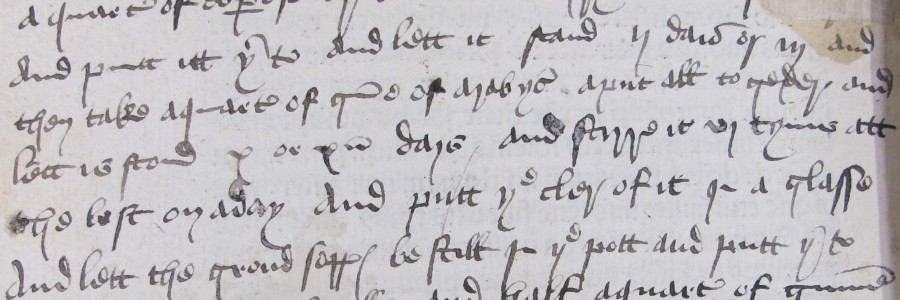 a quart of
And putt itt yr to And lett it stand ij dais or iij and
then take a quarte of gũe of arabyc a put all to geder and
lett is stond x or xij dais, and styrre it vj tymis att
the lest on a day And putt ye cler of it in a glasse
And lett the grond be still in ye pott and putt yr to
and half a quart of gumme